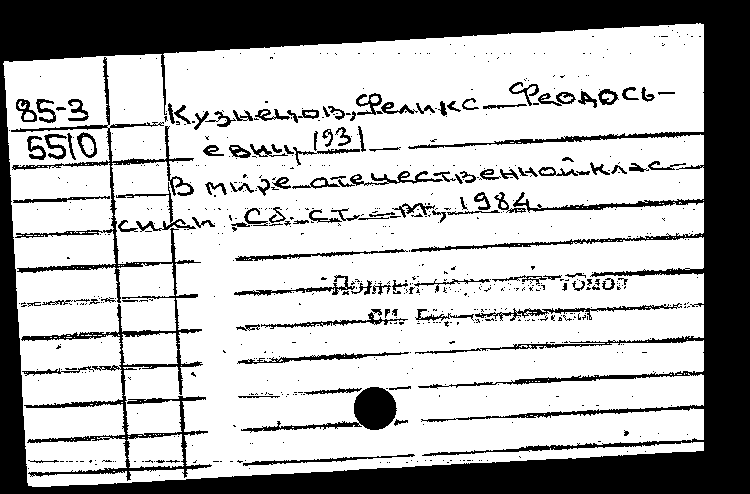 85-3
5510
Кузнецов, Феликс Феодось-
евич, 1931
В мире отечественной клас-
сики : Сб. ст. - М., 1984.
Полный перечень томов
см. под заглавием